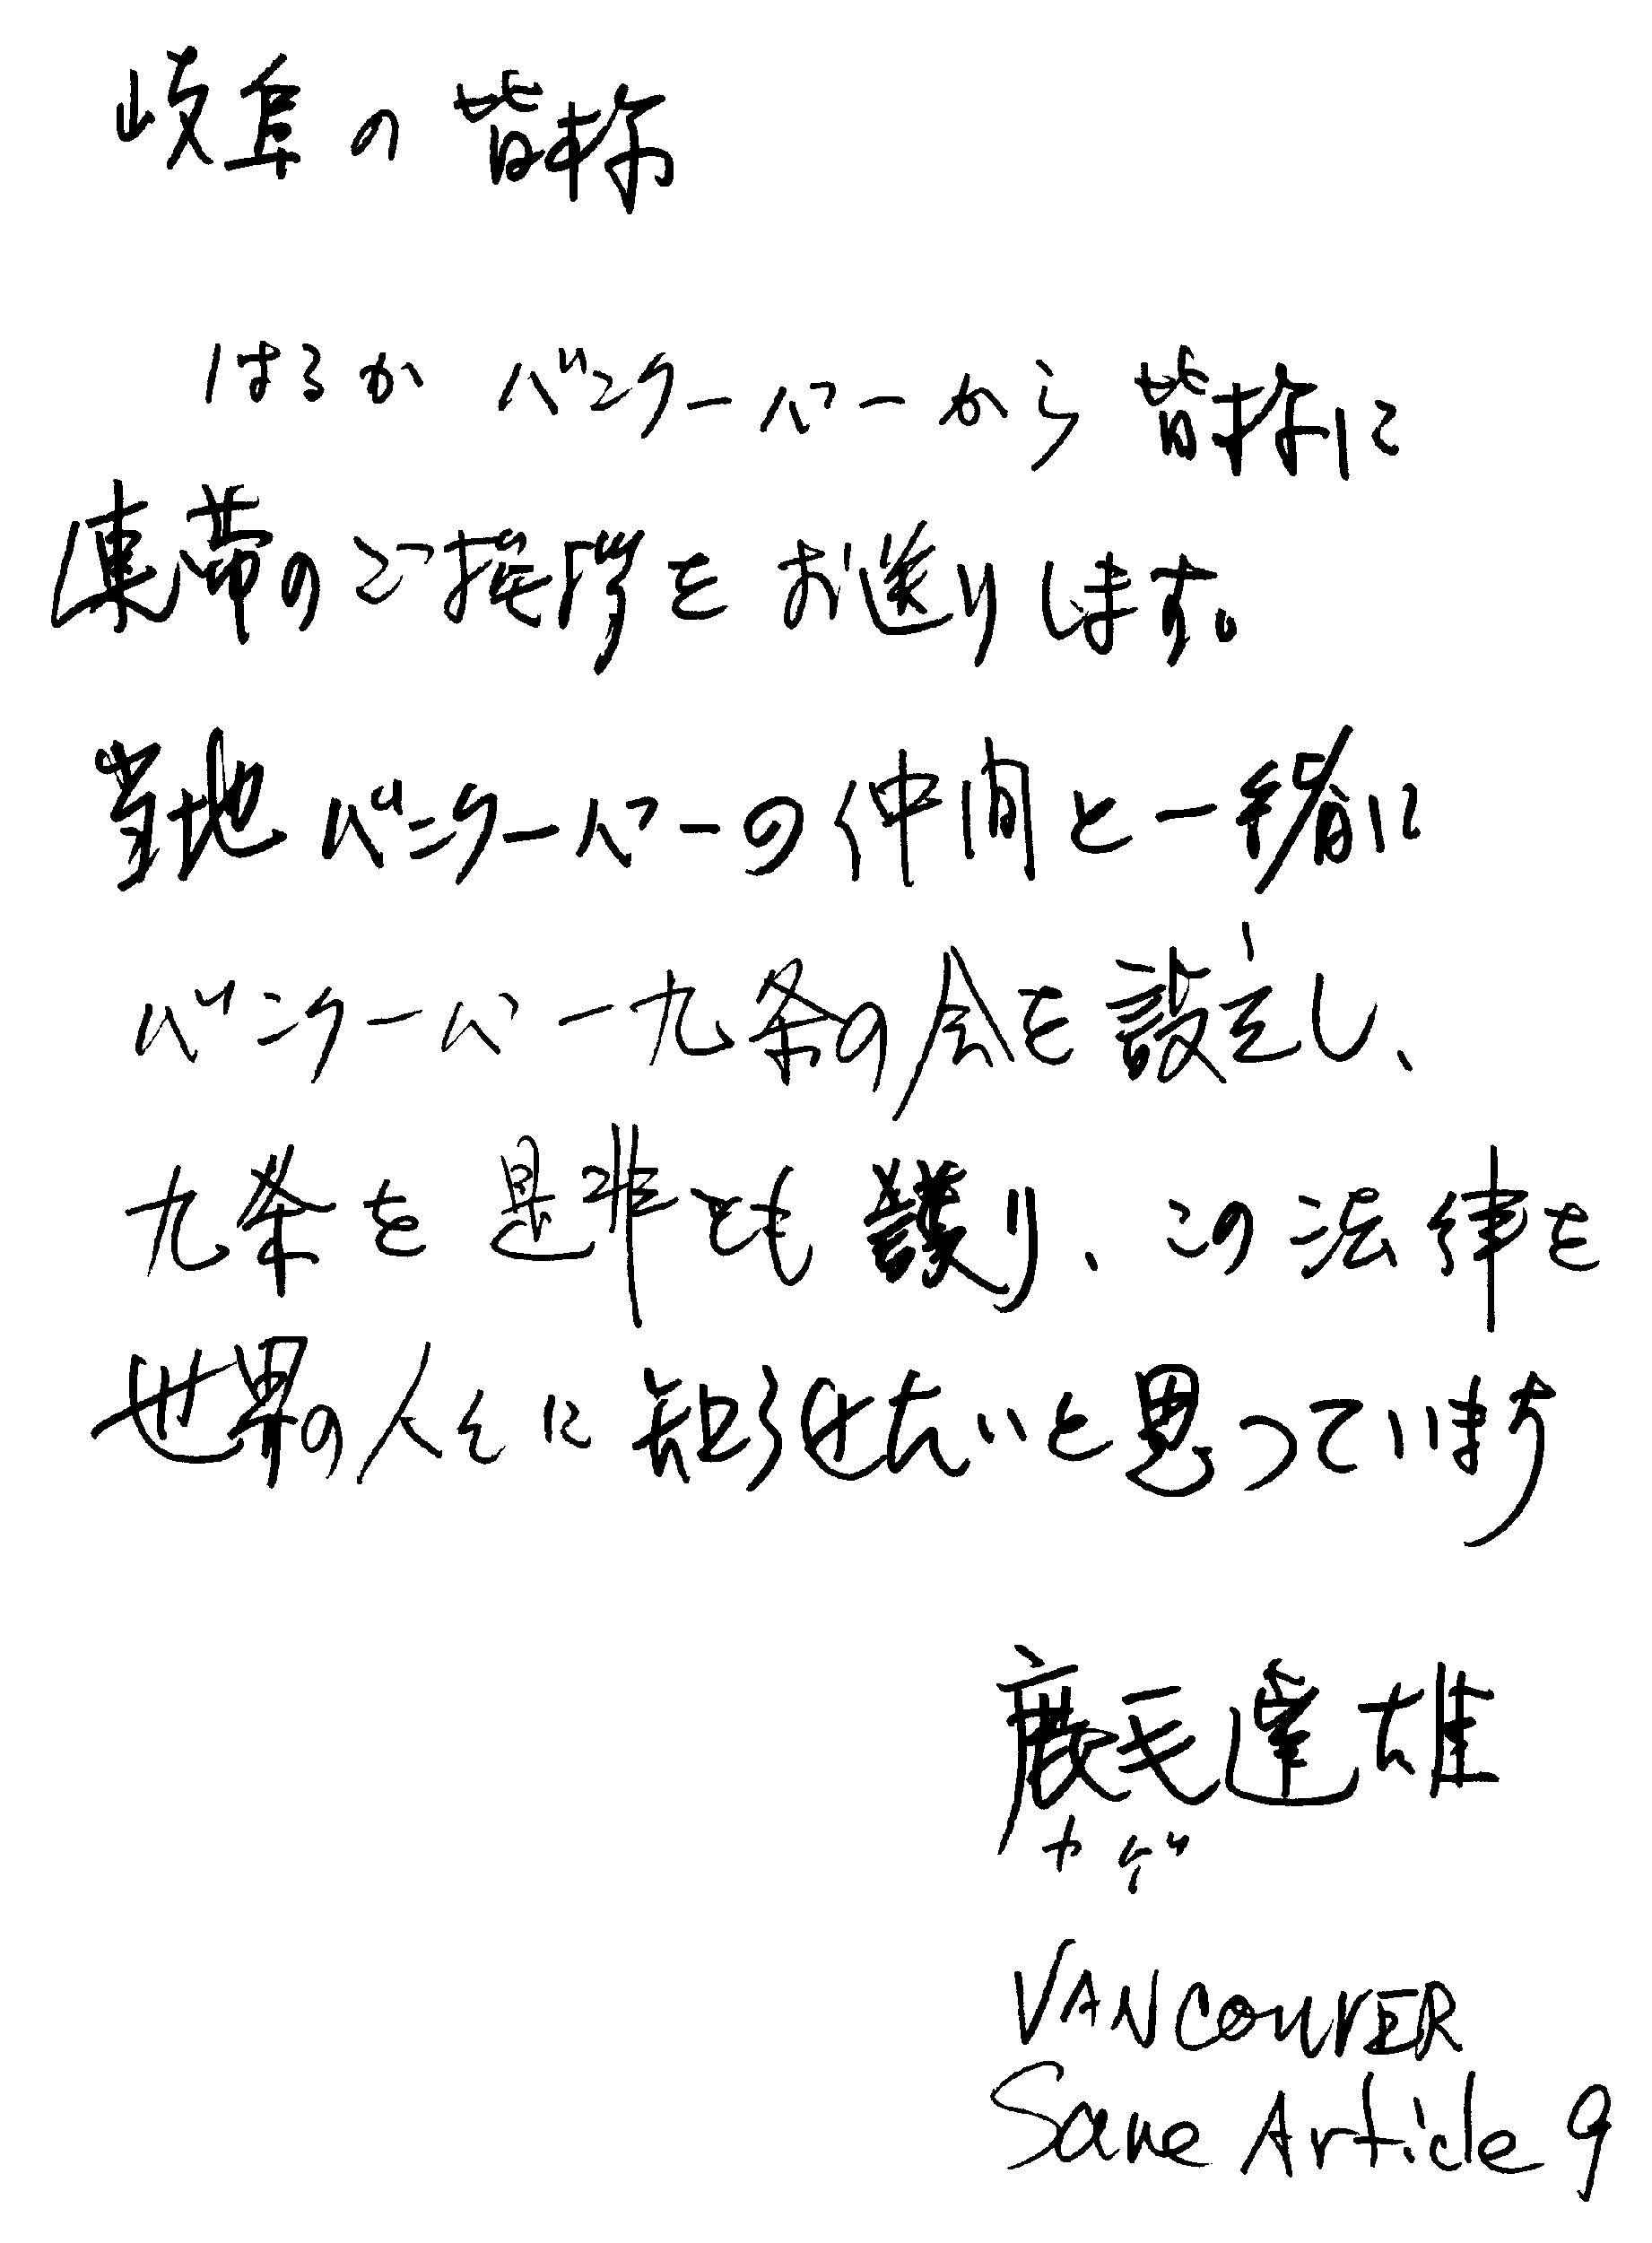 岐阜の皆様
はるかバンクーバーから皆様に
連帯のご挨拶をお送りします。
当地バンクーバーの仲間と一緒に
バンクーバー九条の会を設立し、
九条を是非とも護り、この法律を
世界の人々に知らせたいと思っています
鹿毛達雄
カゲ
VANCOUVER
Save Article 9